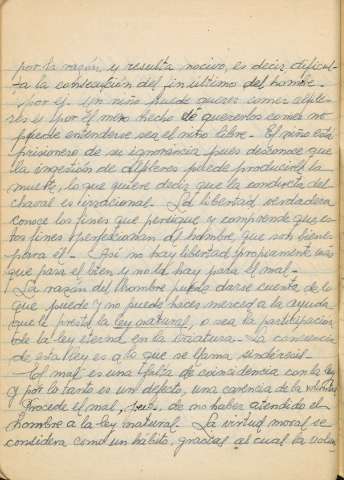 por la razón, y resulta nocivo, es decir dificul-
ta la consecución del fin último del hombre.
por ej. Un niño puede querer comer alfile-
res y por el mero hecho de quererlos comer no
puede entenderse sea el niño libre. - El niño está
prisionero de su ignorancia pues desconoce que
la ingestión de alfileres puede producirle la
muerte, lo que quiere decir que la conducta del
chaval es irracional. - La libertad verdadera
conoce los fines que persigue y comprende que es-
tos fines perfeccionan al hombre, que son bienes
para él. - Así no hay libertad propiamente más
que para el bien y no la hay para el mal. -
La razón del hombre puede darse cuenta de lo
que puede y no puede hacer merced a la ayuda
que le presta la ley natural, o sea la participación
de la ley eterna en la criatura. - La conciencia
de esta ley es a lo que se llama sindéresis. -
El mal es una falta de coincidencia con la ley
y por lo tanto es un defecto, una carencia de la voluntad
Procede el mal, pues, de no haber atendido el
hombre a la ley natural. La virtud moral se
considera como un hábito, gracias al cual la volun-